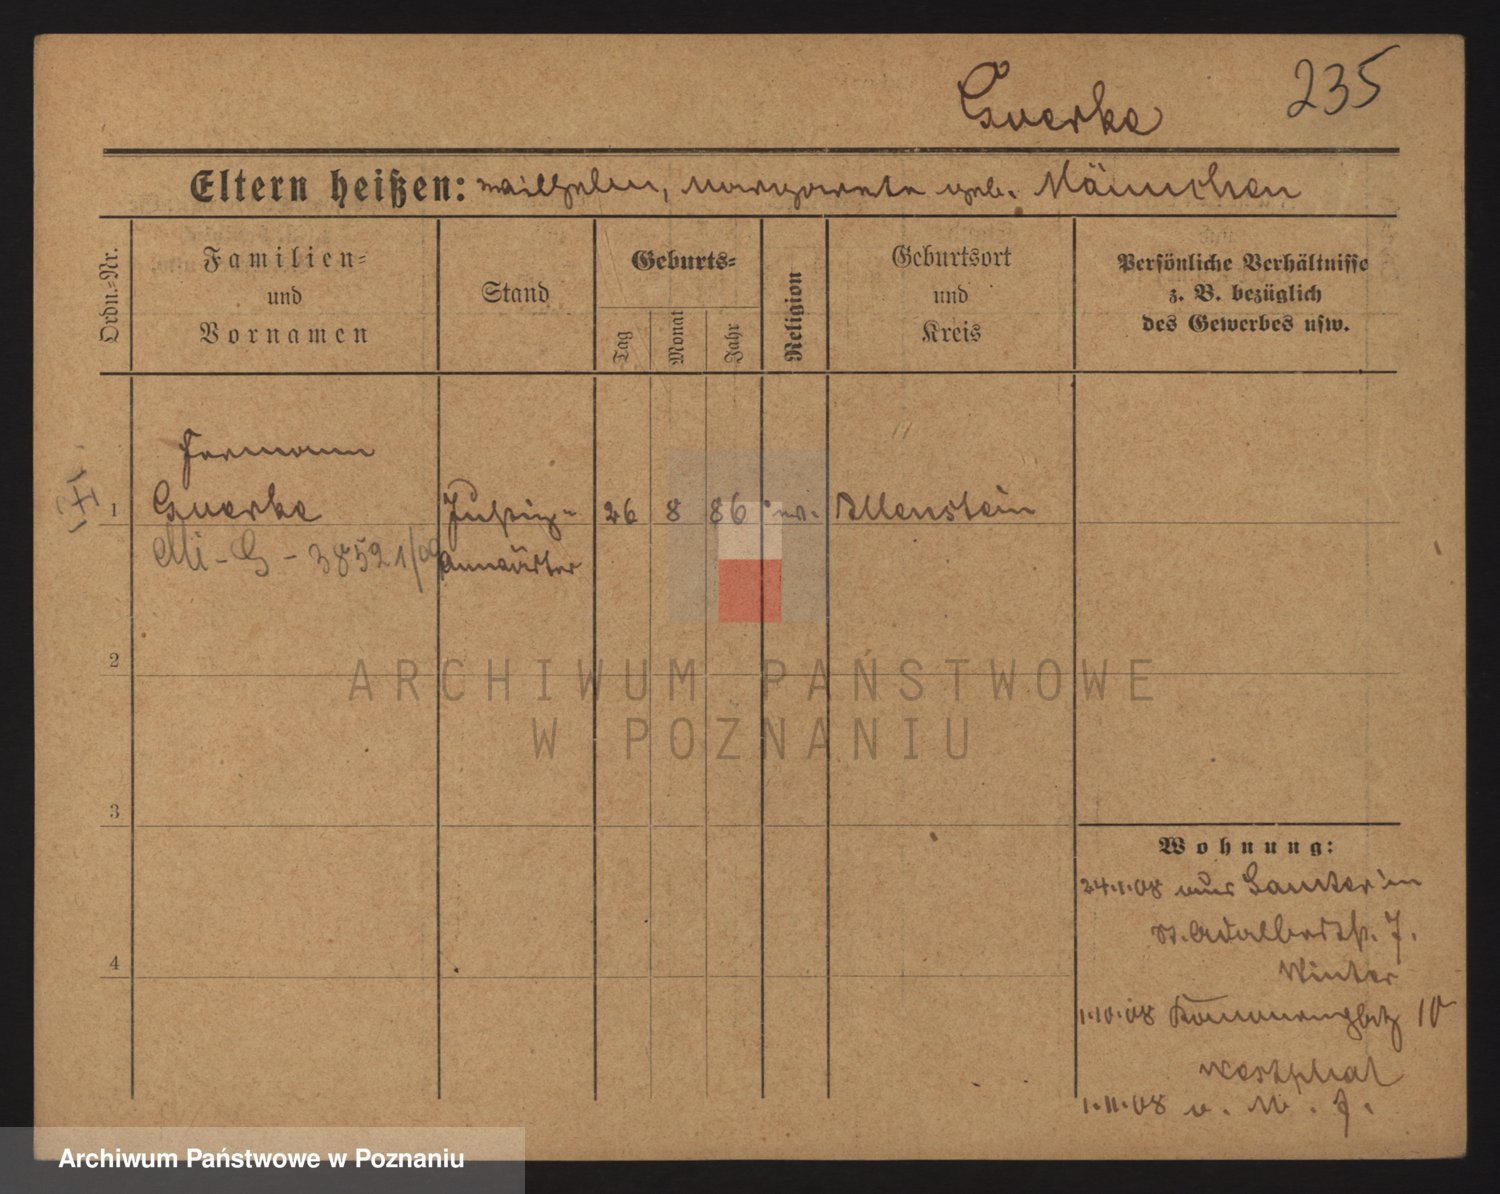 235
Guerke
Eltern heißen: Wilhelm, Margarete geb. Männchen
Ordn.-Nr.
Familien-
und
Vornamen
Stand
Geburts-
Tag
Monat
Jahr
Religion
Geburtsort
und
Kreis
Persönliche Verhältnisse
z. B. bezüglich
des Gewerbes usw.
Hermann
1 Guerke Justiz- 26 8 86 ev. Allenstein
Mi-G-38521/09 Anwärter
2
3
4
ARCHIWUM PAŃSTWOWE
W POZNANIU
Wohnung:
24.1.08 aus Samter in
St. Adalbertstr. 7.
Winter
1.10.08 10
Westphal
1.11.08
Archiwum Państwowe w Poznaniu